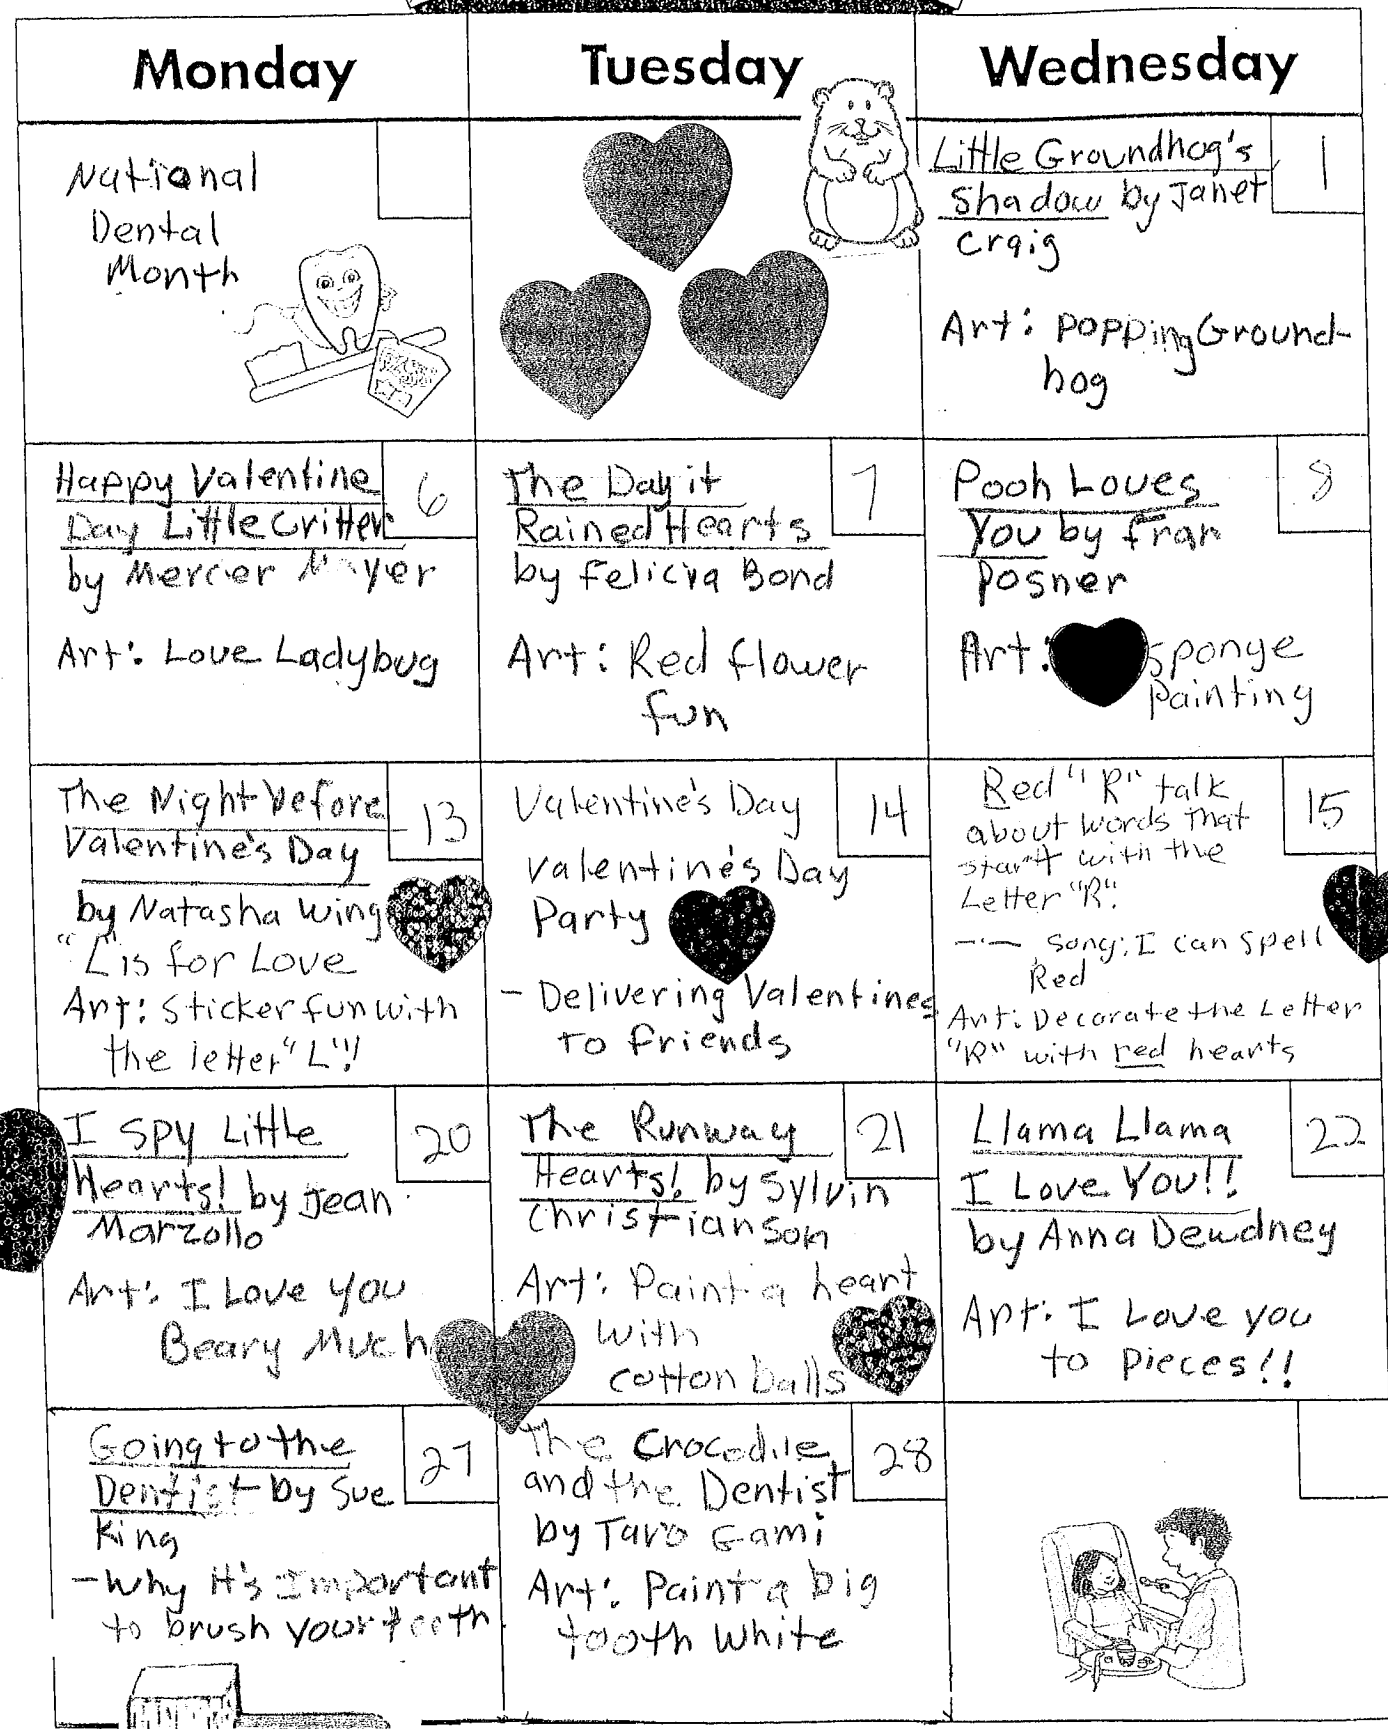 Monday
Tuesday
Wednesday
National
Dental
Month
Little Groundhog's
Shadow by Janet
Craig
1
Art: Popping Ground-
hog
Happy Valentine
Day Little Critter
by Mercer Mayer
6
Art: Love Ladybug
The Day it
Rained Hearts
by Felicia Bond
7
Art: Red flower
fun
Pooh Loves
You by Fran
Posner
8
Art: Sponge
Painting
The Night Before
Valentine's Day
by Natasha Wing
13
"L" is for Love
Art: Sticker fun with
the letter "L"!
Valentine's Day
14
Valentine's Day
Party
- Delivering Valentines
to friends
Red "R" talk
about words that
start with the
Letter "R".
15
Song: I can spell
Red
Art: Decorate the Letter
"R" with red hearts
I SPY Little
Hearts! by Jean
Marzollo
20
Art: I Love you
Beary Much
The Runway
Hearts! by Sylvin
Christianson
21
Art: Paint a heart
with
cotton balls
Llama Llama
I Love You!!
by Anna Dewdney
22
Art: I Love you
to pieces!!
Going to the
Dentist by Sue
King
27
- Why it's Important
to brush your teeth
The Crocodile
and the Dentist
by Taro Gami
28
Art: Paint a big
tooth white